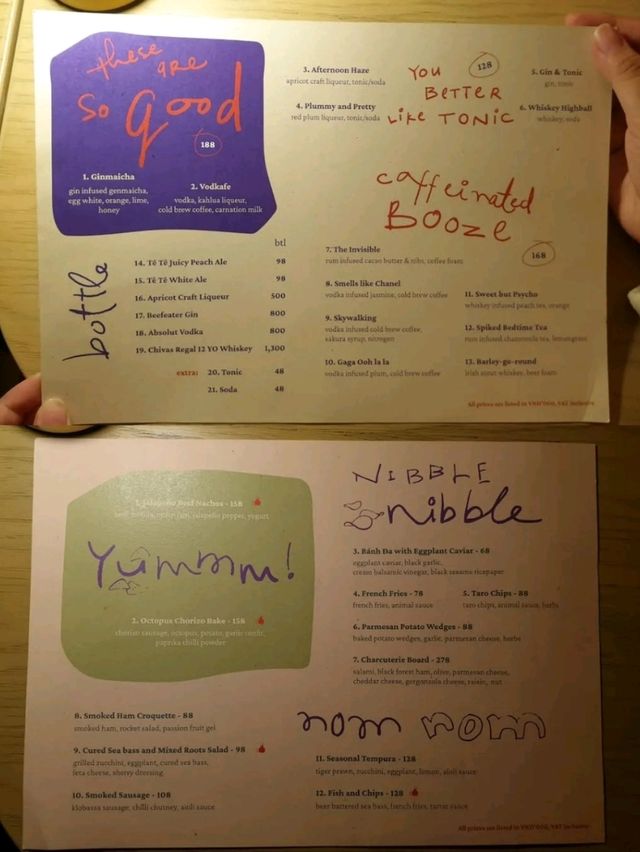 these
are
so good
188
1. Ginmaicha
gin infused genmaicha,
egg white, orange, lime,
honey
2. Vodkafe
vodka, kahlua liqueur,
cold brew coffee, carnation milk
3. Afternoon Haze
apricot craft liqueur, tonic/soda
4. Plummy and Pretty
red plum liqueur, tonic/soda
YOU
BETTER
LIKE TONIC
128
5. Gin & Tonic
gin, tonic
6. Whiskey Highball
whiskey, soda
caffeinated
BOOZE
168
7. The Invisible
rum infused cacao butter & nibs, coffee foam
8. Smells like Chanel
vodka infused jasmine, cold brew coffee
9. Skywalking
vodka infused cold brew coffee,
sakura syrup, nitrogen
10. Gaga Ooh la la
vodka infused plum, cold brew coffee
11. Sweet but Psycho
whiskey infused peach tea, orange
12. Spiked Bedtime Tea
rum infused chamomile tea, lemongrass
13. Barley-go-round
irish stout whiskey, beer foam
bottle
btl
14. Tê Tê Juicy Peach Ale 98
15. Tê Tê White Ale 98
16. Apricot Craft Liqueur 500
17. Beefeater Gin 800
18. Absolut Vodka 800
19. Chivas Regal 12 YO Whiskey 1,300
extra: 20. Tonic 48
21. Soda 48
All prices are listed in VND'000, VAT inclusive
1. Jalapeño Beef Nachos - 158
jalapeño pepper, yogurt
Yummmm!
2. Octopus Chorizo Bake - 158
chorizo sausage, octopus, potato, garlic confit,
paprika chilli powder
NIBBLE
nibble
3. Bánh Đa with Eggplant Caviar - 68
eggplant caviar, black garlic,
cream balsamic vinegar, black sesame ricepaper
4. French Fries - 78
french fries, animal sauce
5. Taro Chips - 88
taro chips, animal sauce, herbs
6. Parmesan Potato Wedges - 88
baked potato wedges, garlic, parmesan cheese, herbs
7. Charcuterie Board - 278
salami, black forest ham, olive, parmesan cheese,
cheddar cheese, gorgonzola cheese, raisin, nut
8. Smoked Ham Croquette - 88
smoked ham, rocket salad, passion fruit gel
9. Cured Sea bass and Mixed Roots Salad - 98
grilled zucchini, eggplant, cured sea bass,
feta cheese, sherry dressing
10. Smoked Sausage - 108
klobassa sausage, chilli chutney, aioli sauce
nom nom
11. Seasonal Tempura - 128
tiger prawn, zucchini, eggplant, lemon, aioli sauce
12. Fish and Chips - 128
beer battered sea bass, french fries, tartar sauce
All prices are listed in VND'000, VAT inclusive